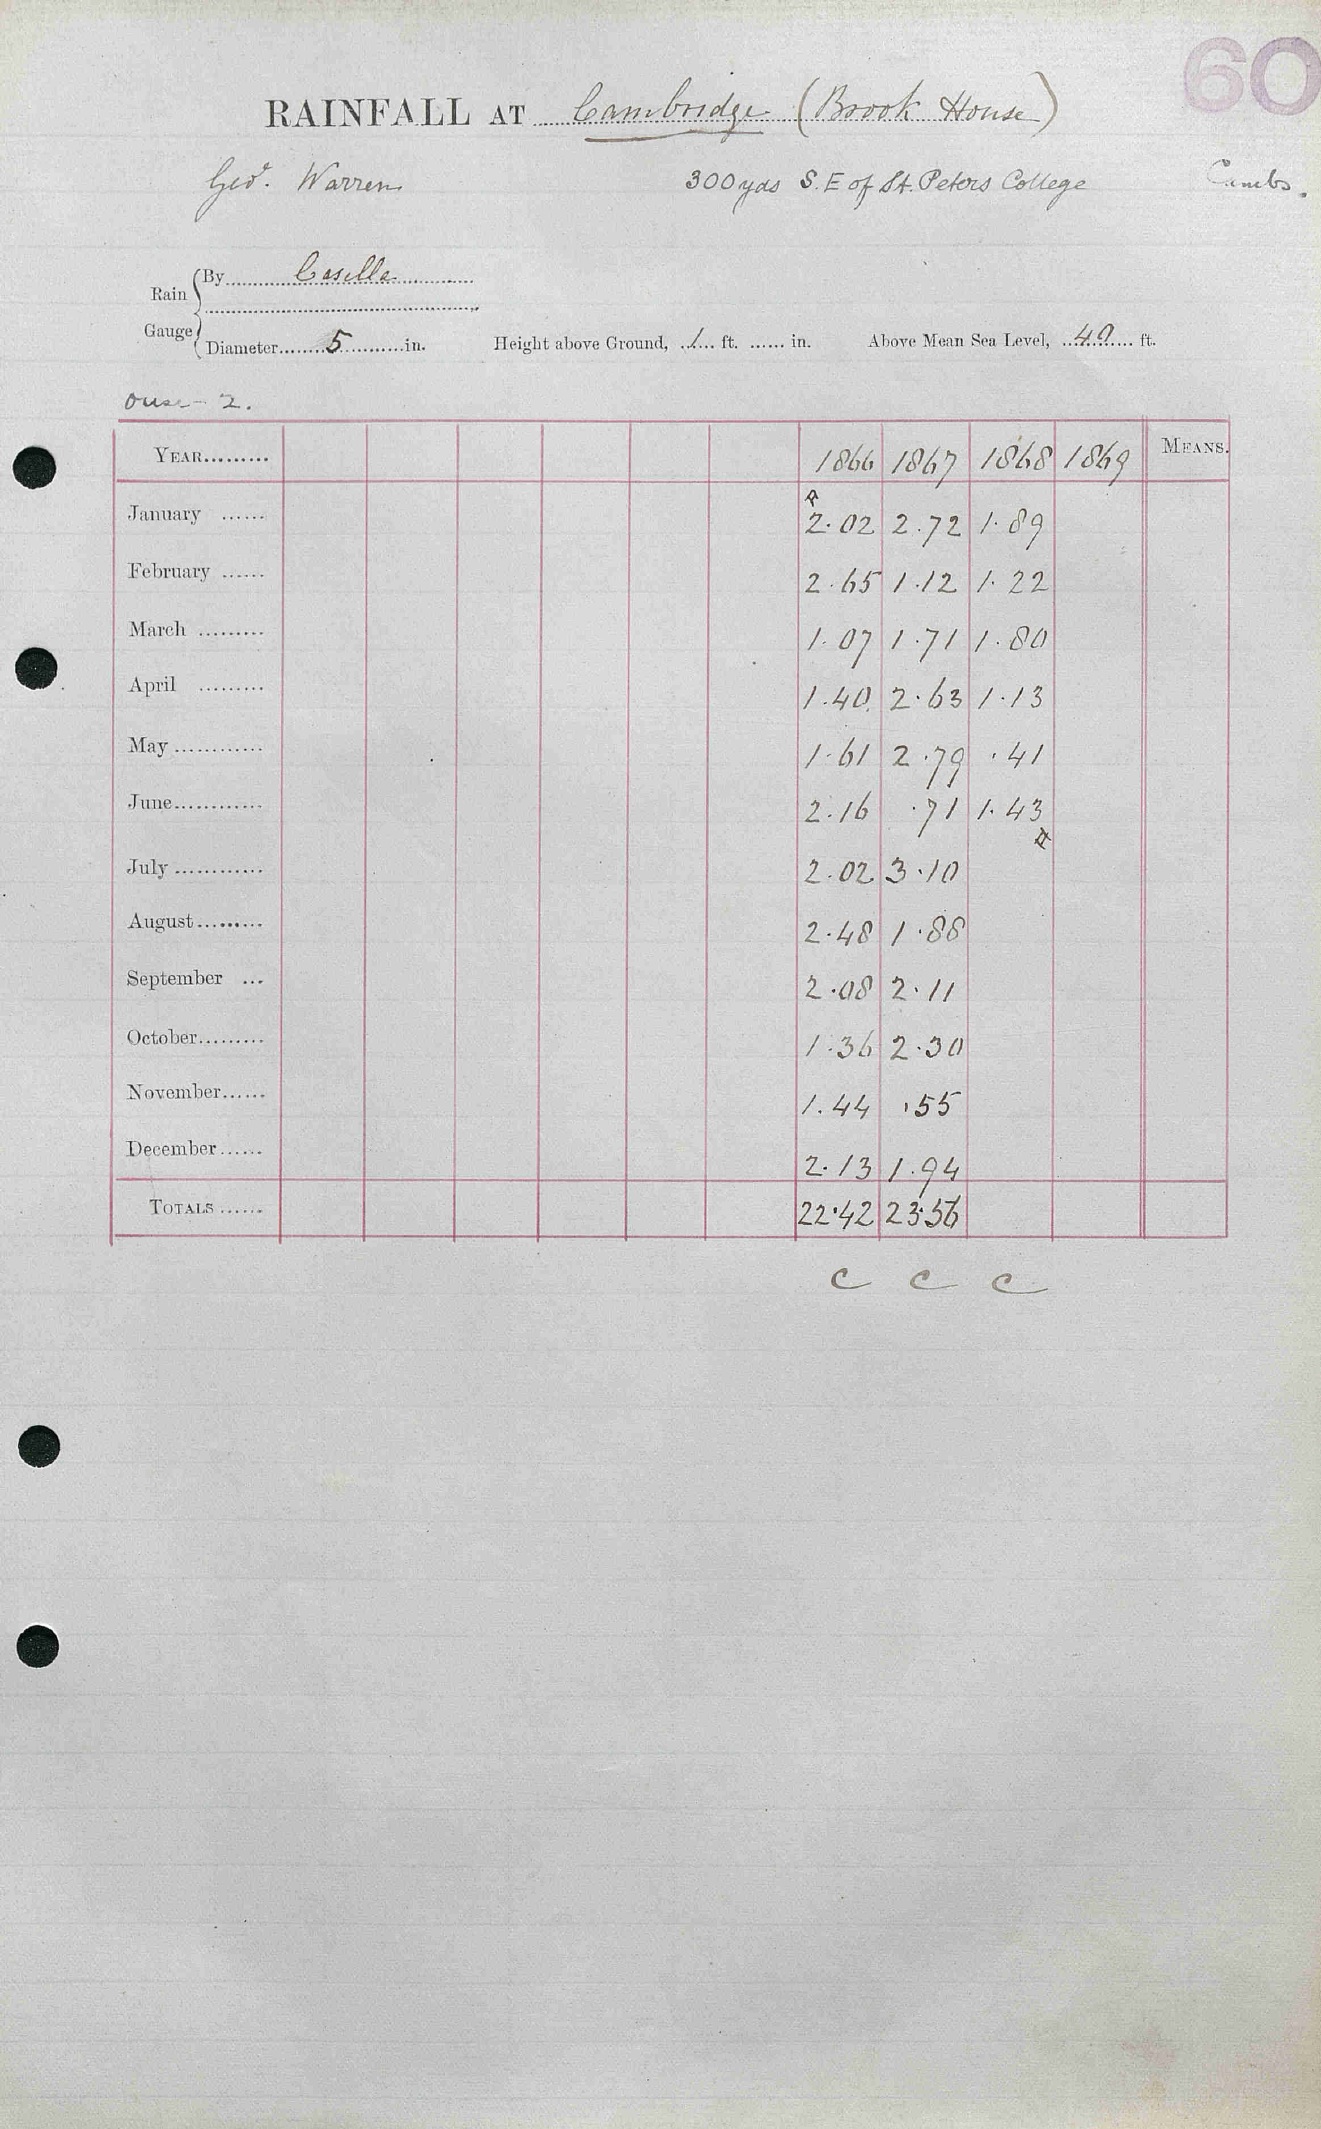 60
RAINFALL AT Cambridge (Brook House)
Geo. Warren 300 yds S.E of St. Peters College Cambs.
Rain Gauge
By Casella
Diameter 5 in. Height above Ground, 1 ft. ...... in. Above Mean Sea Level, 40 ft.
Ouse - 2.
YEAR......... 1866 1867 1868 1869 MEANS.
January ...... 2.02 2.72 1.89
February ...... 2.65 1.12 1.22
March ......... 1.07 1.71 1.80
April ......... 1.40 2.63 1.13
May ............ 1.61 2.79 .41
June............ 2.16 .71 1.43
July ............ 2.02 3.10
August......... 2.48 1.88
September ... 2.08 2.11
October......... 1.36 2.30
November...... 1.44 .55
December...... 2.13 1.94
TOTALS ...... 22.42 23.56
C C C